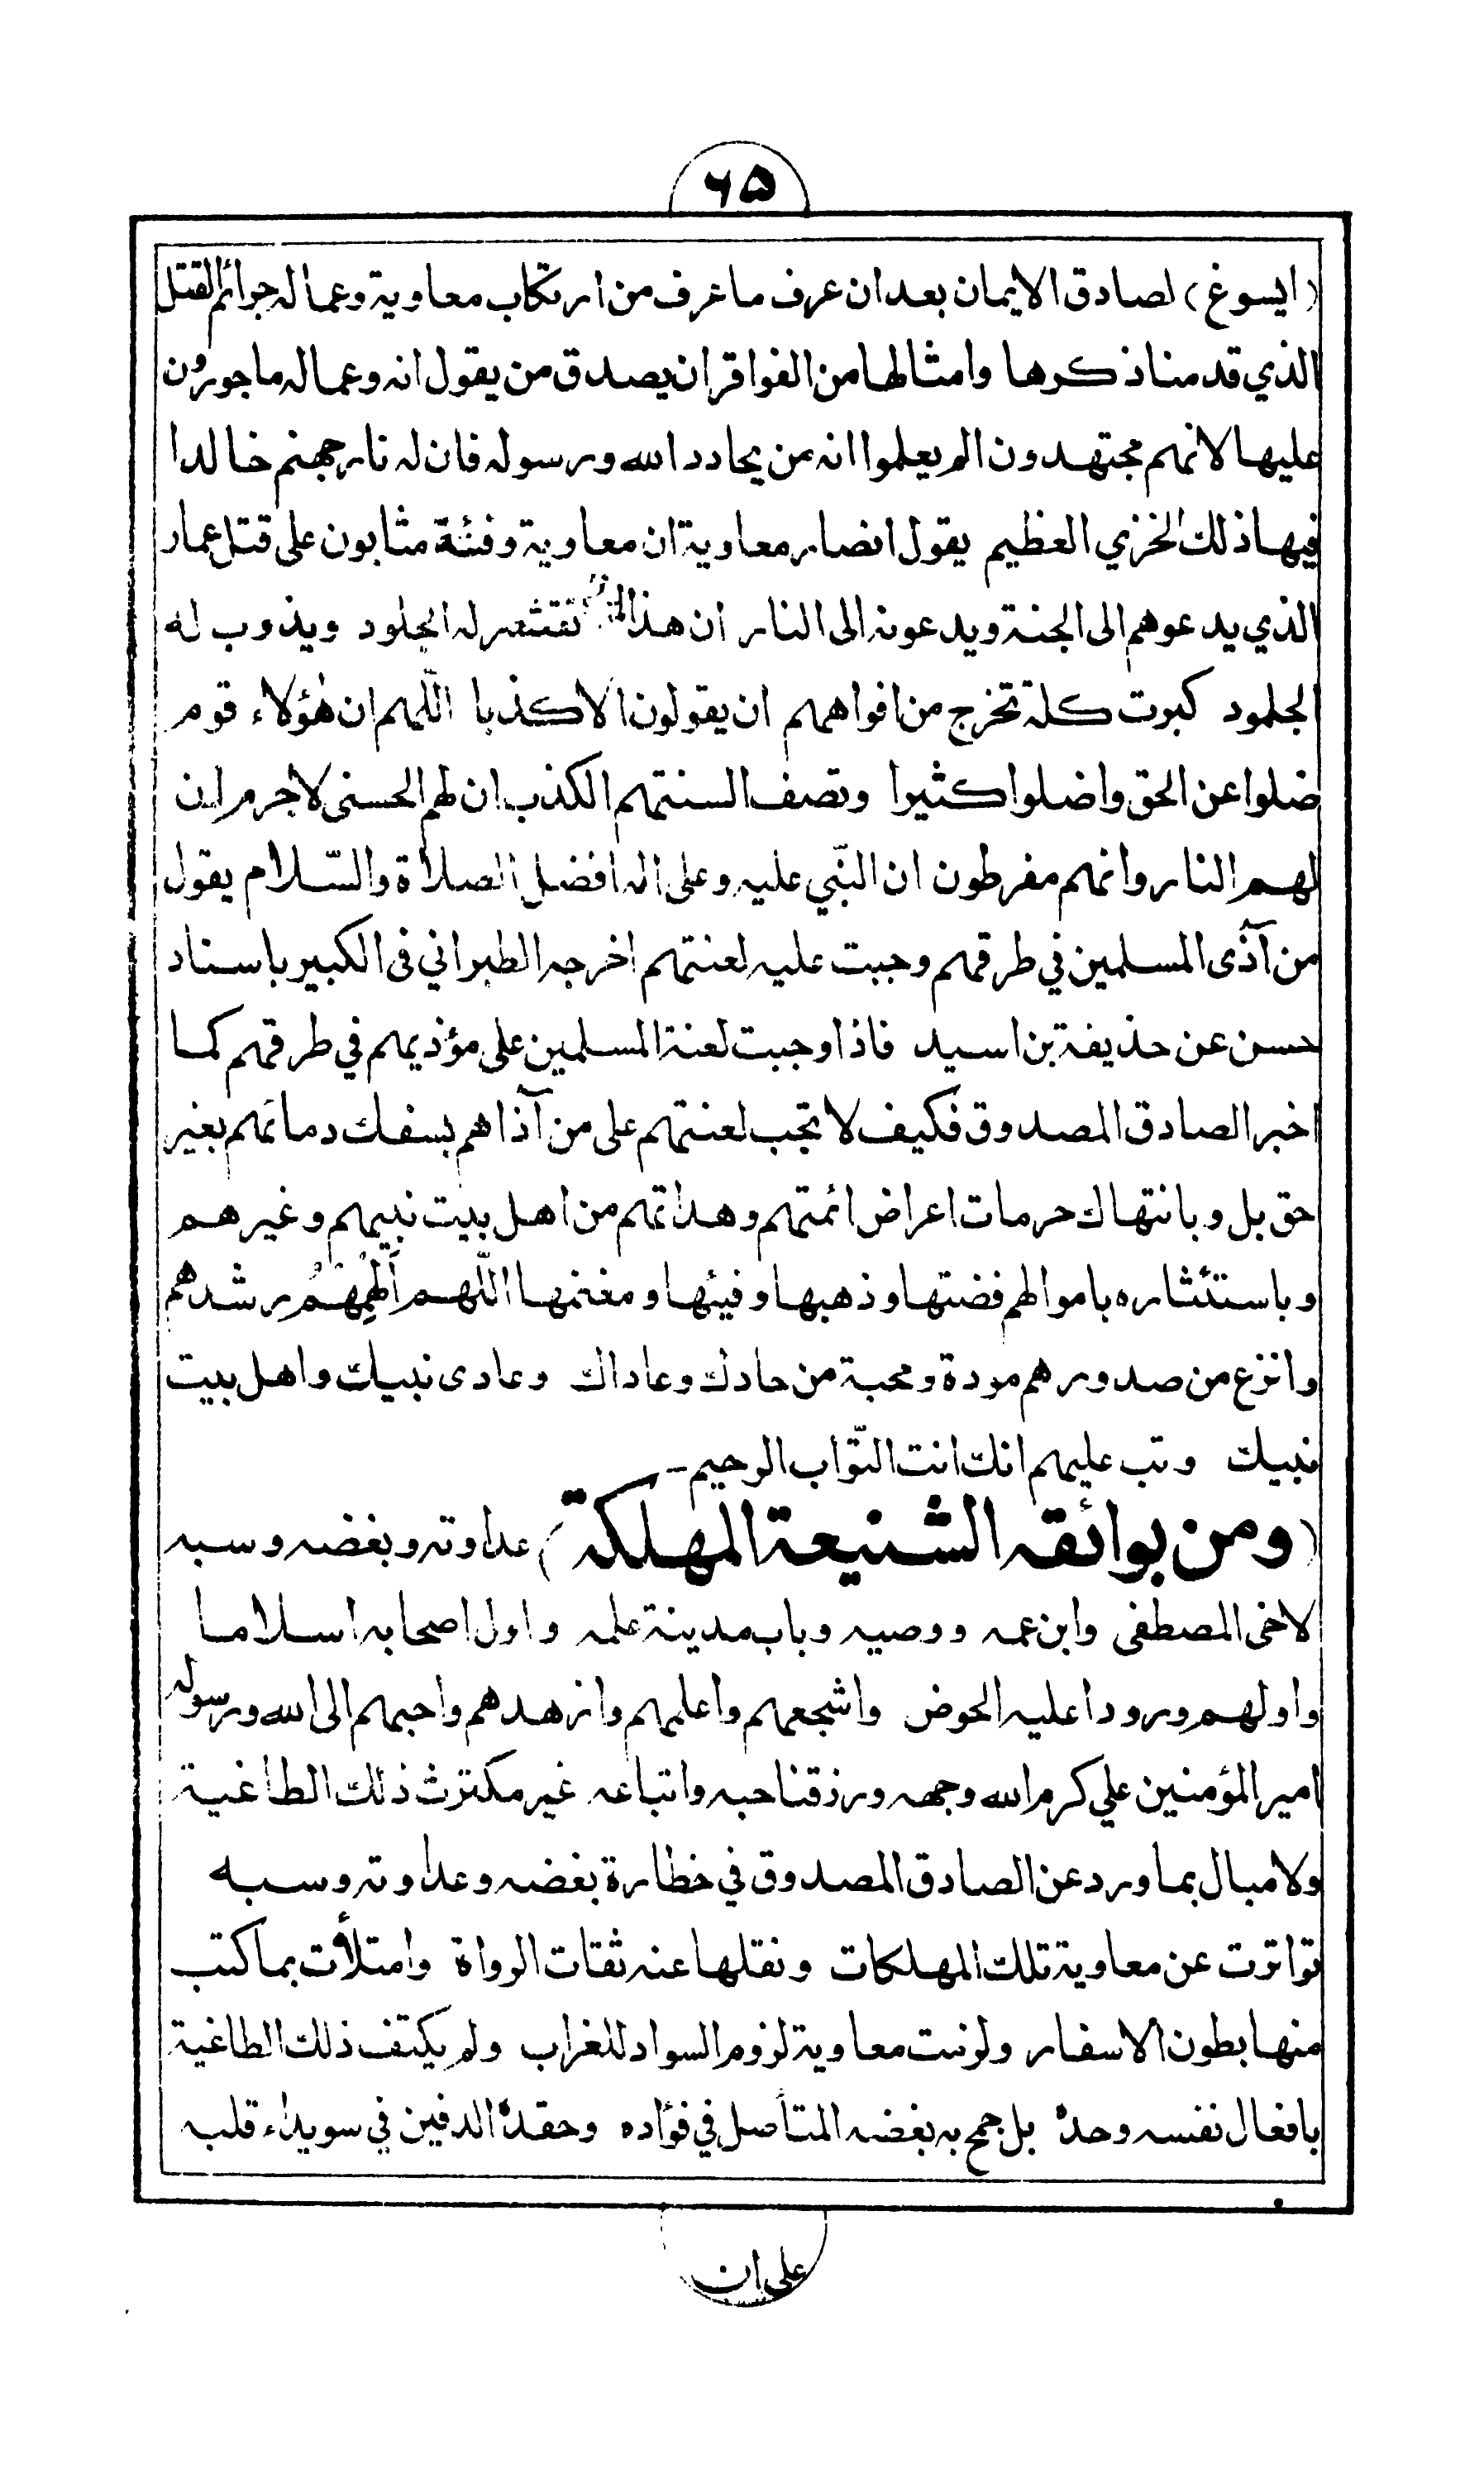 ٦٥
(ايسوغ) لصادق الايمان بعد ان عرف ما عرف من ارتكاب معاوية وعماله جرائم القتل
الذي قدمنا ذكرها وامثالها من الفواقر ان يصدق من يقول انه وعماله ماجورون
عليها لانهم مجتهدون الم يعلموا انه من يحادد الله ورسوله فان له نار جهنم خالدا
فيها ذلك الخزي العظيم يقول انصار معاوية ان معاوية وفئته مثابون على قتل عمار
الذي يدعوهم الى الجنة ويدعونه الى النار ان هذا تقشعر له الجلود ويذوب له
الجلمود كبرت كلمة تخرج من افواههم ان يقولون الا كذبا اللّهم ان هؤلاء قوم
ضلوا عن الحق واضلوا كثيرا وتصف السنتهم الكذب ان لهم الحسنى لا جرم ان
لهم النار وانهم مفرطون ان النّبي عليه وعلى اله افضل الصلاة والسّلام يقول
من آذى المسلمين في طرقهم وجبت عليه لعنتهم اخرجه الطبراني فى الكبير باسناد
حسن عن حذيفة بن اسيد فاذا وجبت لعنة المسلمين على مؤذيهم في طرقهم كما
اخبر الصادق المصدوق فكيف لا تجب لعنتهم على من آذاهم بسفك دمائهم بغير
حق بل وبانتهاك حرمات اعراض ائمتهم وهداتهم من اهل بيت نبيهم وغيرهم
وباستئثاره باموالهم فضتها وذهبها وفيئها ومغنمها اللّهم أَلْهِمْهُمْ رشدهم
وانزع من صدورهم مودة ومحبة من حادك وعاداك وعادى نبيك واهل بيت
نبيك وتب عليهم انك انت التّواب الرحيم-
(ومن بوائقه الشنيعة المهلكة) عداوته وبغضه وسبه
لاخى المصطفى وابن عمه ووصيه وباب مدينة علمه واول اصحابه اسلاما
واولهم ورودا عليه الحوض واشجعهم واعلمهم وازهدهم واحبهم الى الله ورسوله
امير المؤمنين علي كرم الله وجهه ورزقنا حبه واتباعه غير مكترث ذلك الطاغية
ولا مبال بما ورد عن الصادق المصدوق في خطارة بغضه وعداوته وسبه
تواترت عن معاوية تلك المهلكات ونقلها عنه ثقات الرواة وامتلأت بما كتب
منها بطون الاسفار ولزنت معاوية لزوم السواد للغراب ولم يكتف ذلك الطاغية
بافعال نفسه وحده بل جمح به بغضه المتأصل في فؤاده وحقده الدفين في سويداء قلبه
على ان